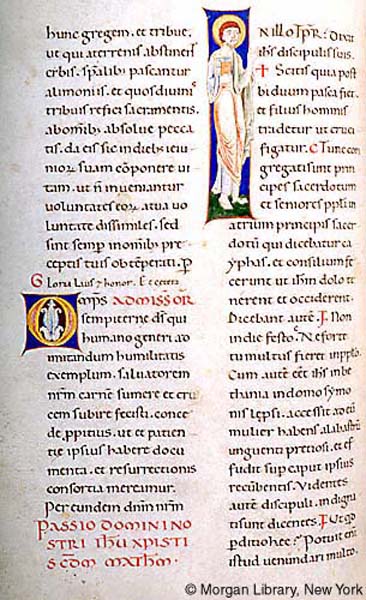 hunc gregem. et tribue,
ut qui aterrenis abstinent
cibis. spalibus pascantur
alimoniis. et quos diuinis
tribuis refici sacramentis.
ab omibus absolue pecca
tis. da eis sic in diebus ieiu
niorum suam componere ui
tam. ut non inueniantur
uoluntates eorum a tua uo
luntate dissimiles. sed
sint semper in omnibus pre
ceptis tuis obtemperati. per
Gloria Laus et honor. Et cetera
Omps AD MISSAM OR
sempiterne ds qui
humano generi ad
imitandum humilitatis
exemplum. saluatorem
nrm carne sumere et cru
cem subire fecisti. conce
de ppitius. ut et patien
tie ipsius habere docu
menta. et resurrectionis
consortia mereamur.
Per eundem dnm nrm
PASSIO DOMINI NO
STRI IHU XPISTI
SCDM MATHM.
IN ILLO TPR. Dixit
ihs discipulis suis.
Scitis quia post
biduum pasca fiet.
et filius hominis
tradetur ut cruci
figatur. C Tunc con
gregati sunt prin
cipes sacerdotum
et seniores ppli in
atrium principis sacer
dotu qui dicebatur ca
yphas. et consilium fe
cerunt ut ihm dolo te
nerent et occiderent.
Dicebant aute. Non
in die festo. Ne forte
tumultus fieret in pplo.
Cum aute eet ihs in be
thania in domo symo
nis lepsi. accessit ad eu
mulier habens alabastru
unguenti pretiosi. et ef
fudit sup caput ipsius
recubentis. Videntes
aute discipuli. indigna
ti sunt dicentes. Ut qd
perditio hec. Potuit eni
istud uenundari multo.
© Morgan Library, New York